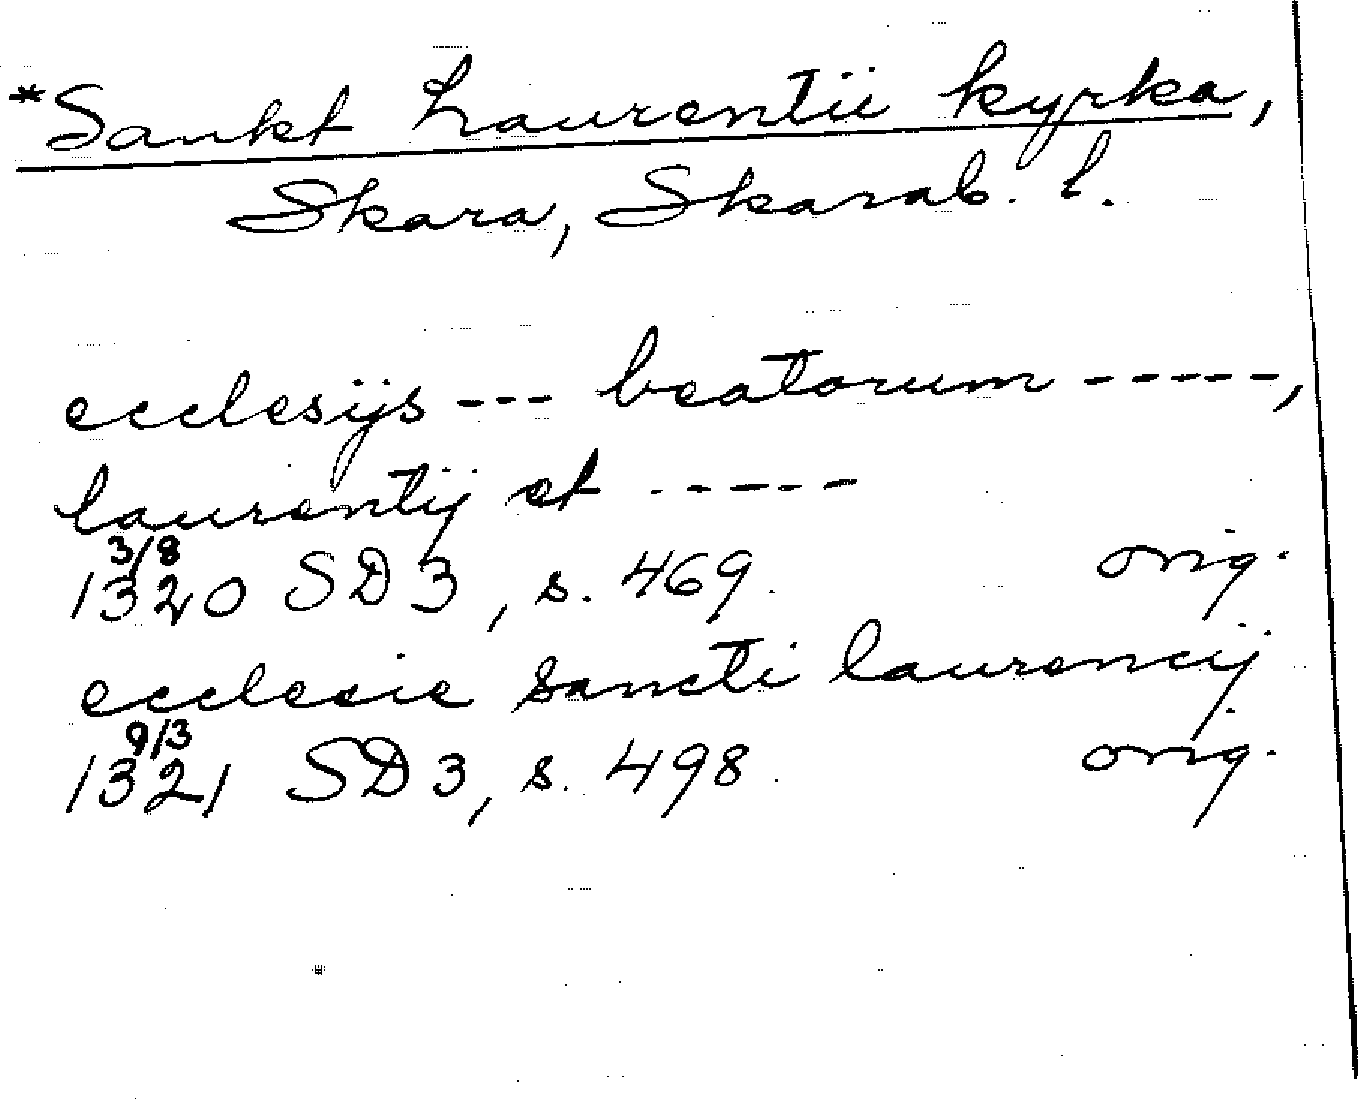 *Sankt Laurentii kyrka,
Skara, Skarab. l.
ecclesijs --- beatorum -----,
laurentij et -----
3/8
1320 SD 3, s. 469. orig.
ecclesie sancti laurencij
9/3
1321 SD 3, s. 498. orig.